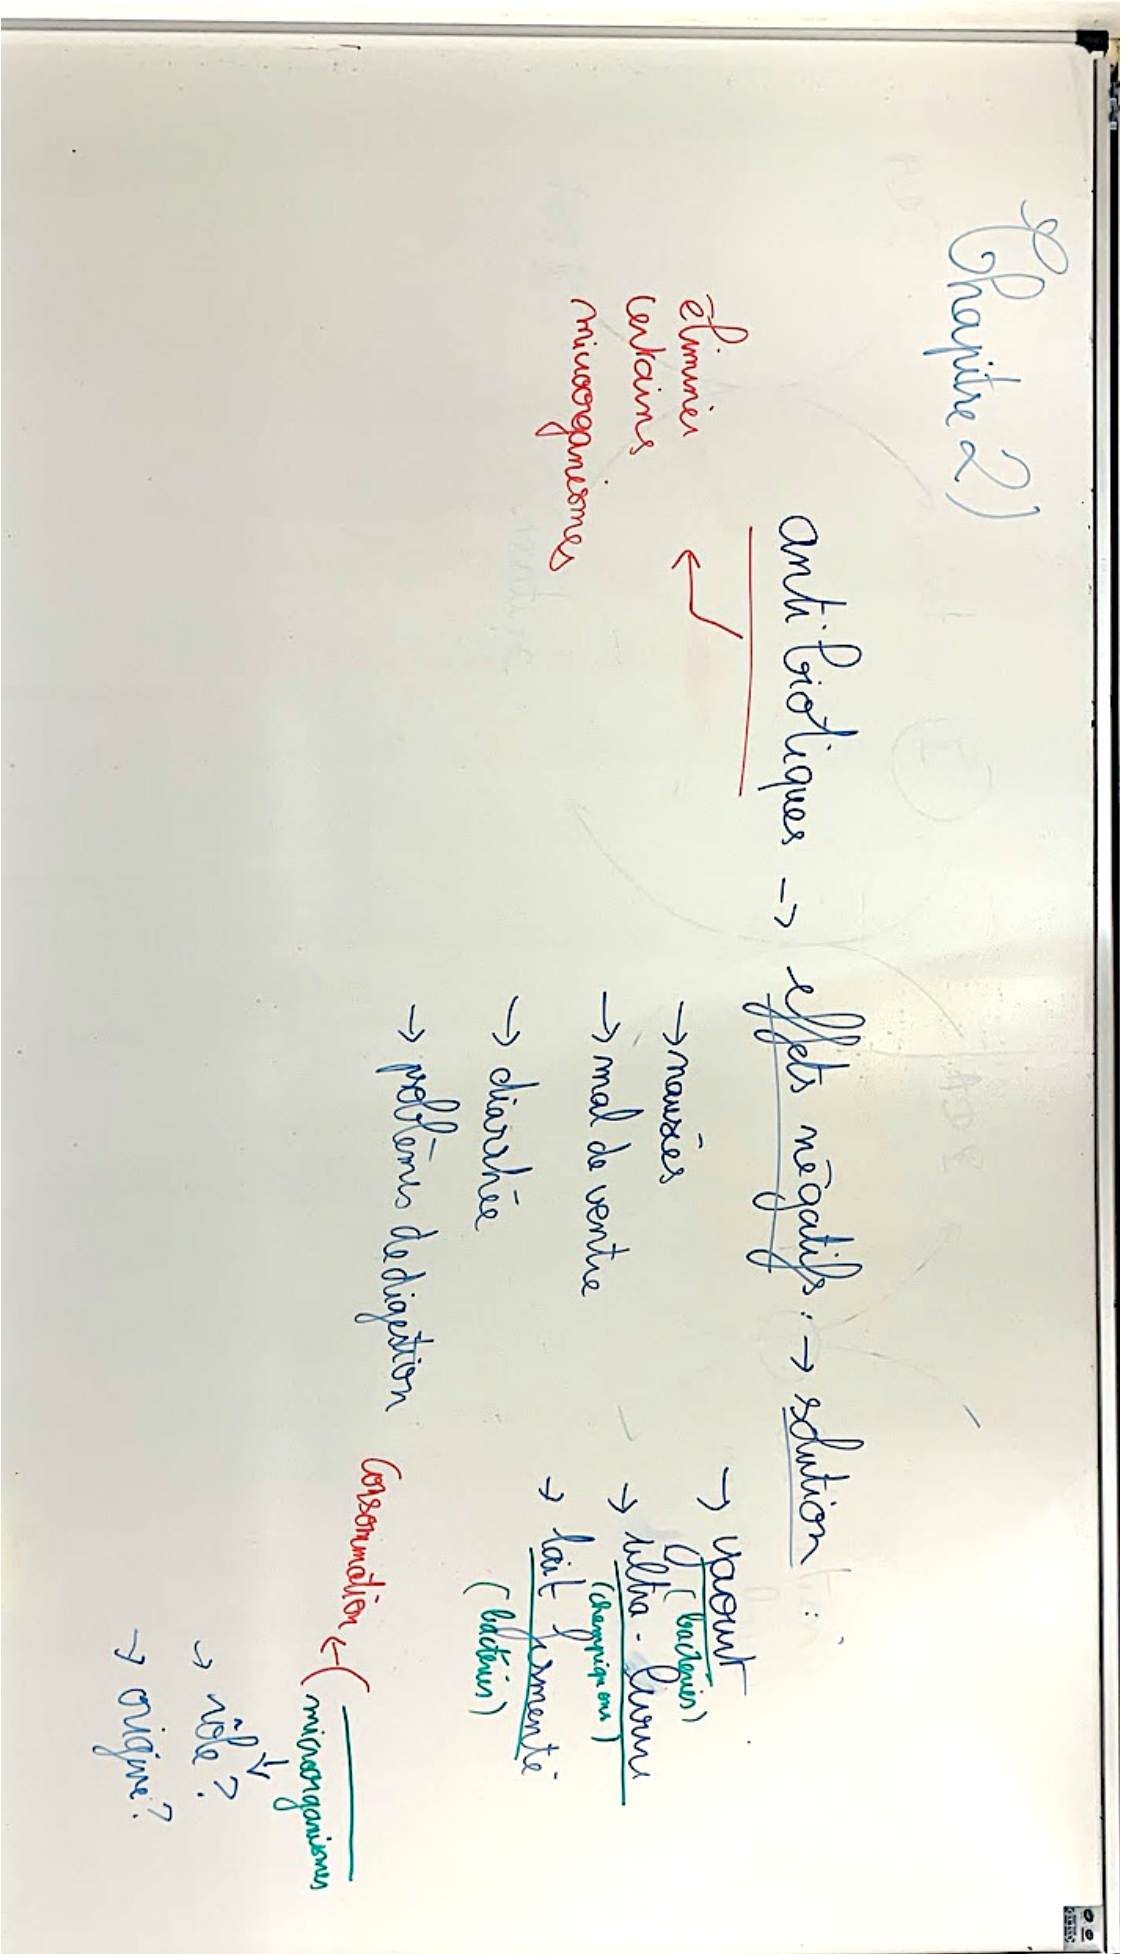 Chapitre 2)
antibiotiques -> effets négatifs : -> solution :
éliminer
certains
microorganismes
-> nausées
-> mal de ventre
-> diarrhée
-> problèmes de digestion
-> yaourt
(bactéries)
-> ultra-levure
(champignons)
-> lait fermenté
(bactéries)
Consommation <- (microorganismes
↓
-> rôle ?
-> origine ?